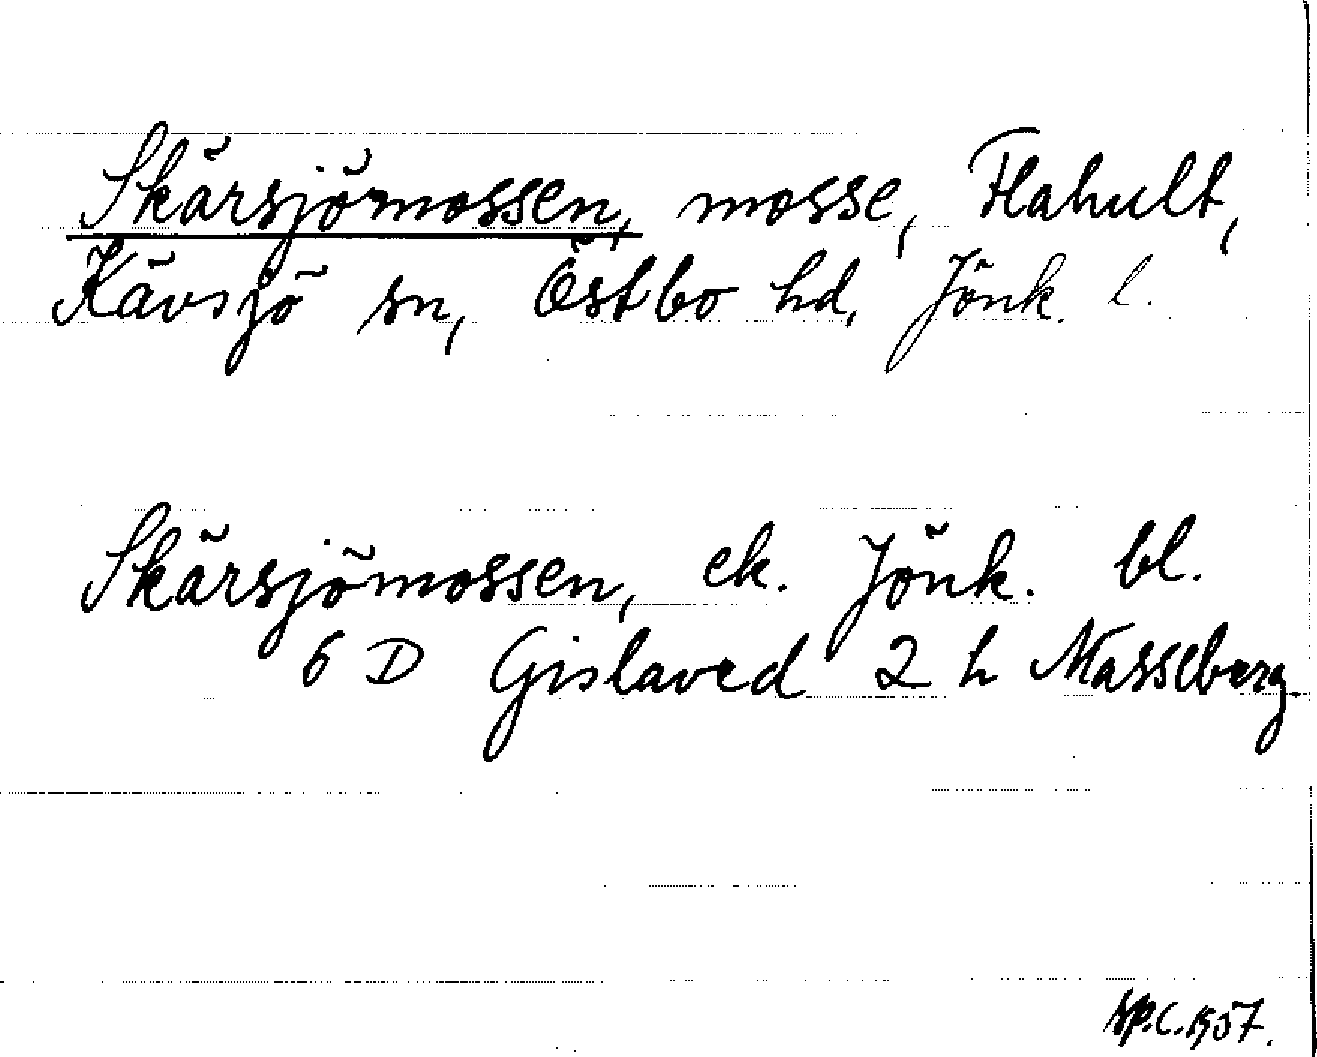 Skärsjömossen, mosse, Flahult,
Kävsjö sn, Östbo hd, Jönk. l.
Skärsjömossen, ek. Jönk. bl.
6 D Gislaved 2 h Masseberg
1957.